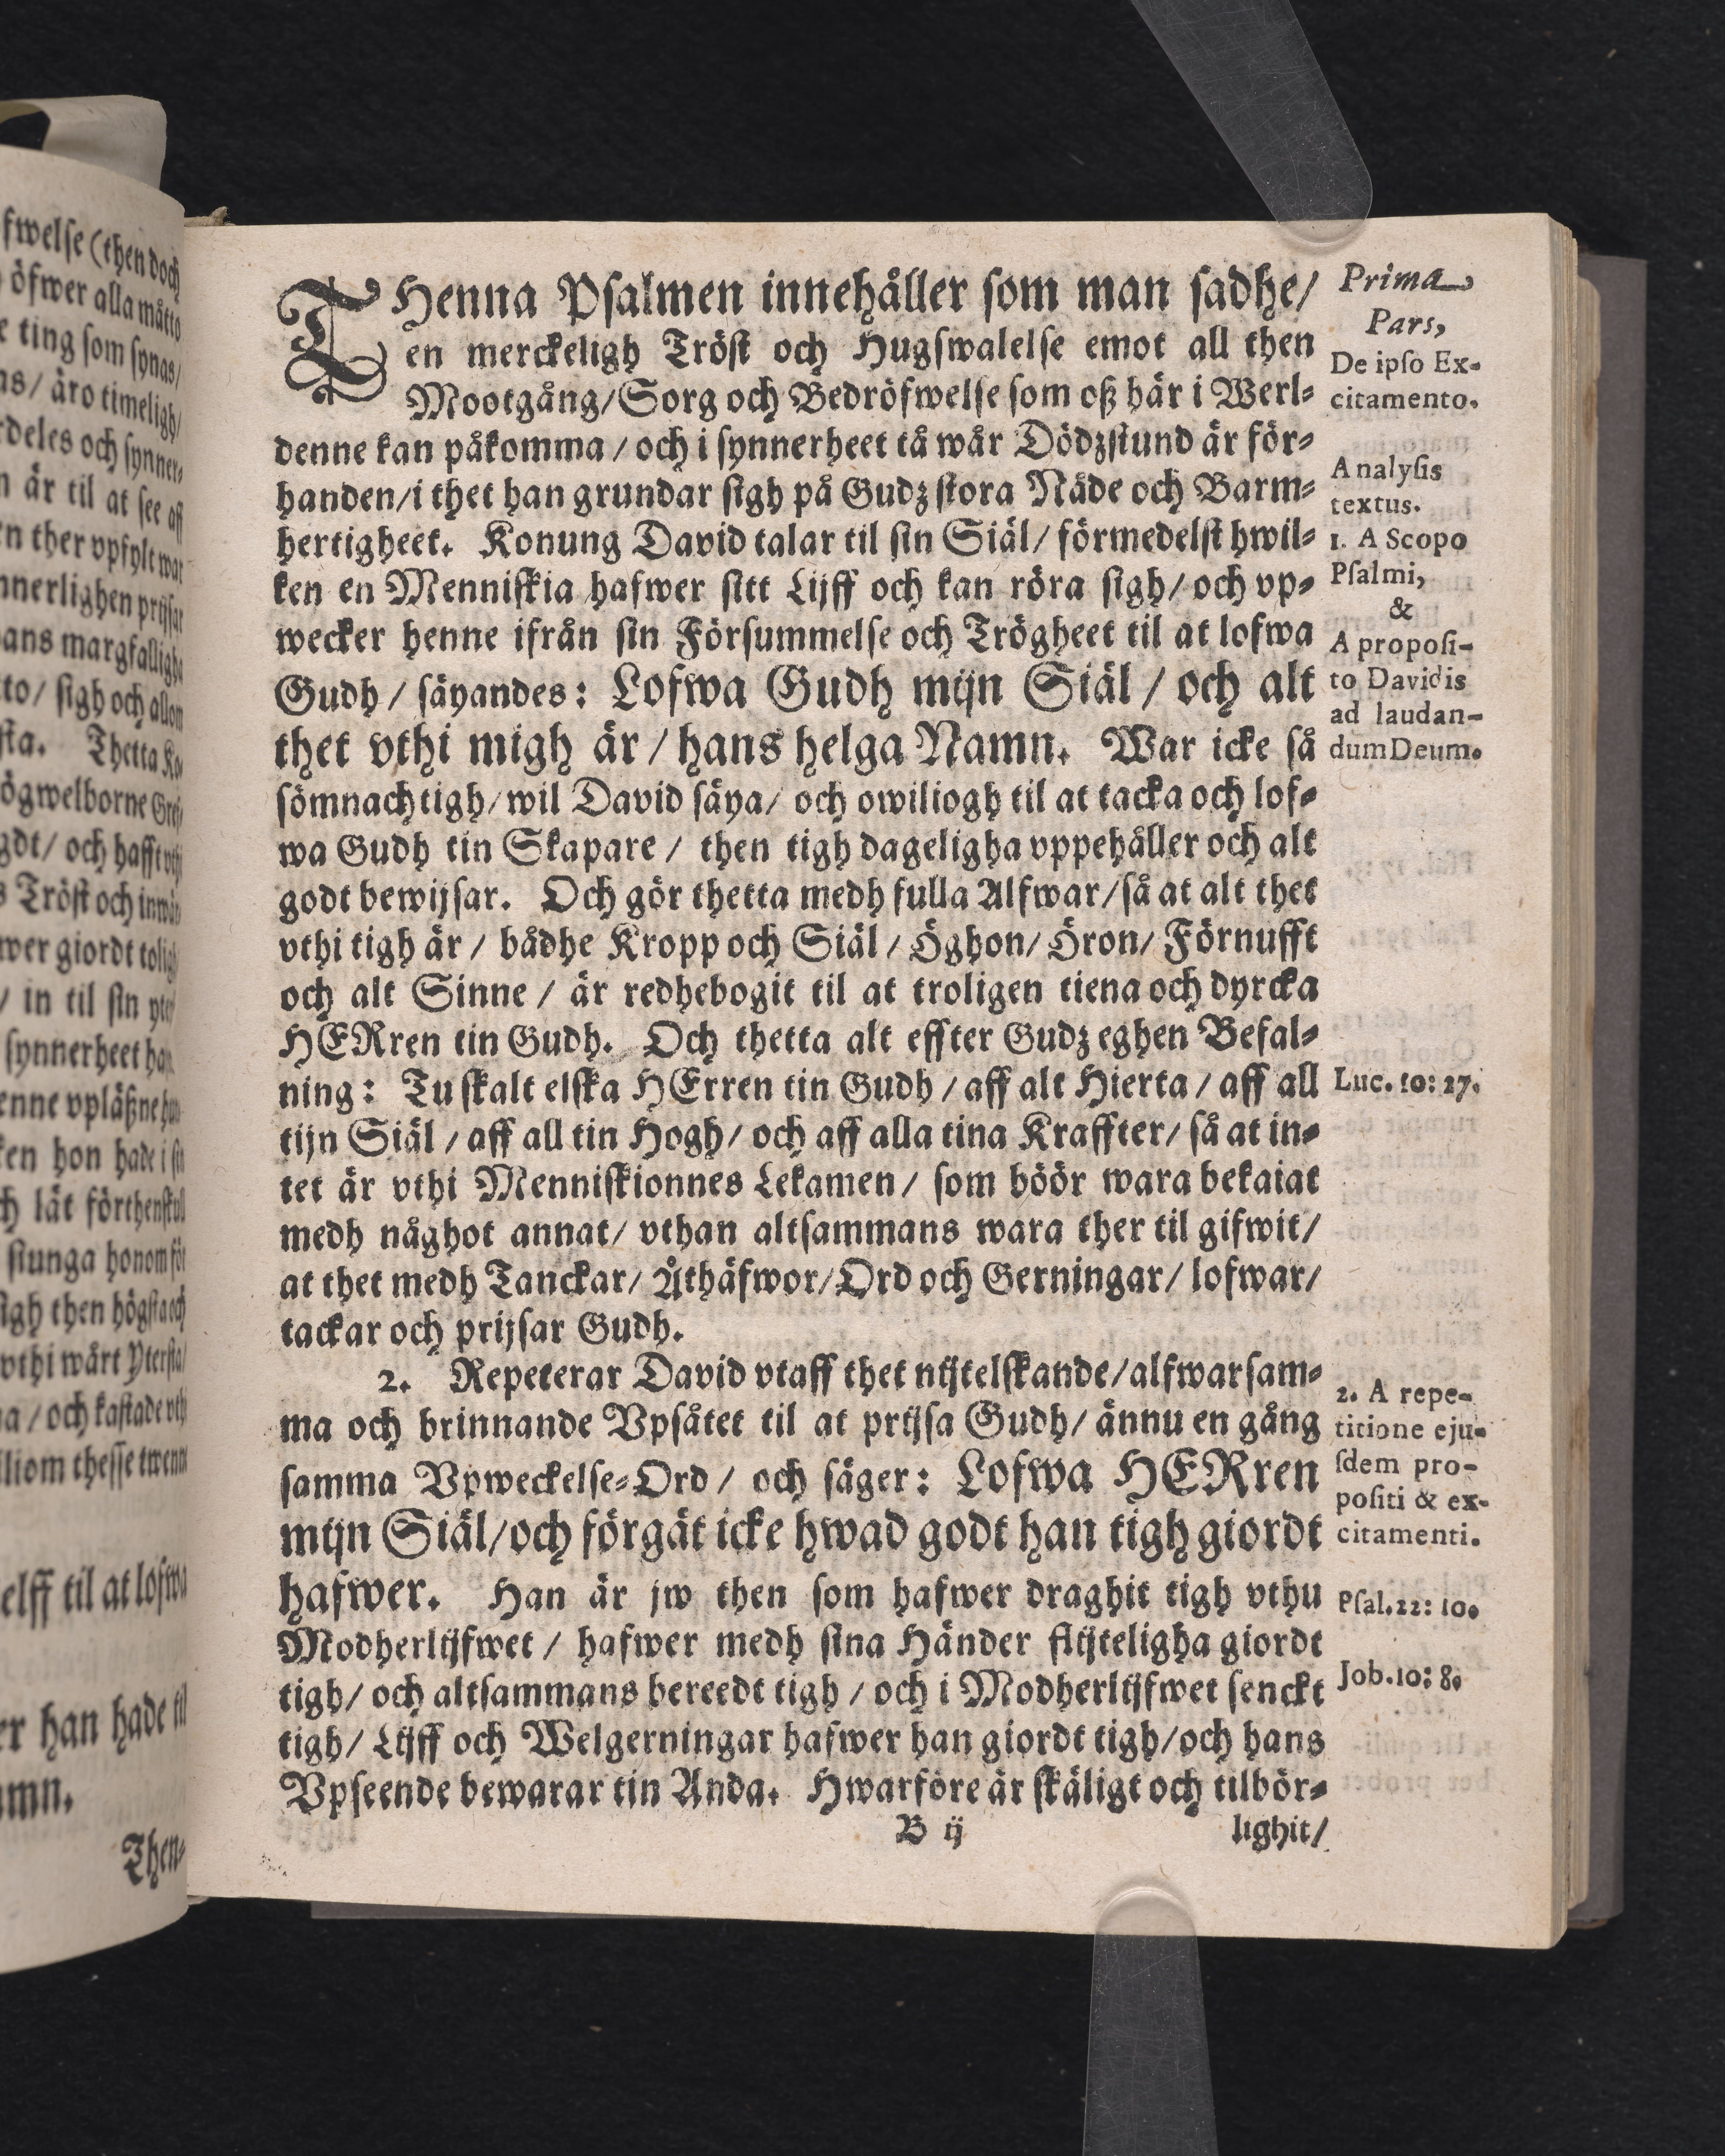 THenna Psalmen innehåller som man sadhe/
en merckeligh Tröst och Hugswalelse emot all then
Mootgång/Sorg och Bedröfwelse som oß här i Werl-
denne kan påkomma / och i synnerheet tå wår Dödzstund är för-
handen/i thet han grundar sigh på Gudz stora Nåde och Barm-
hertigheet. Konung David talar til sin Siäl/ förmedelst hwil-
ken en Menniskia hafwer sitt Lijff och kan röra sigh/ och vp-
wecker henne ifrån sin Försummelse och Trögheet til at lofwa
Gudh / säyandes: Lofwa Gudh mijn Siäl / och alt
thet vthi migh är / hans helga Namn. War icke så
sömnachtigh/ wil David säya/ och owiliogh til at tacka och lof-
wa Gudh tin Skapare / then tigh dageligha vppehåller och alt
godt bewijsar. Och gör thetta medh fulla Alfwar/så at alt thet
vthi tigh är / bådhe Kropp och Siäl / Öghon/ Öron/ Förnufft
och alt Sinne / är redhebogit til at troligen tiena och dyrcka
HERren tin Gudh. Och thetta alt effter Gudz eghen Befal-
ning: Tu skalt elska HErren tin Gudh / aff alt Hierta / aff all
tijn Siäl / aff all tin Hogh/ och aff alla tina Kraffter/ så at in-
tet är vthi Menniskionnes Lekamen/ som böör wara bekaiat
medh någhot annat/ vthan altsammans wara ther til gifwit/
at thet medh Tanckar/ Åthäfwor/Ord och Gerningar/ lofwar/
tackar och prijsar Gudh.
2. Repeterar David vtaff thet nijtelskande/alfwarsam-
ma och brinnande Vpsåtet til at prijsa Gudh/ ännu en gång
samma Vpweckelse-Ord / och säger: Lofwa HERren
mijn Siäl/och förgät icke hwad godt han tigh giordt
hafwer. Han är jw then som hafwer draghit tigh vthu
Modherlijfwet / hafwer medh sina Händer flijteligha giordt
tigh/ och altsammans bereedt tigh / och i Modherlijfwet senckt
tigh/ Lijff och Welgerningar hafwer han giordt tigh/och hans
Vpseende bewarar tin Anda. Hwarföre är skäligt och tilbör-
B ij lighit/
Prima
Pars,
De ipso Ex-
citamento.
Analysis
textus.
1. A Scopo
Psalmi,
&
A proposi-
to Davidis
ad laudan-
dum Deum.
Luc. 10: 27.
2. A repe-
titione eju-
sdem pro-
positi & ex-
citamenti.
Psal. 22: 10.
Job. 10: 8.
fwelse (then doch
öfwer alla måtto
ting som synas/
äro timeligh/
och synner-
är til at see aff
ther vpfylt war
prijsar
ans margfalligha
sigh och allom
Thetta
ögwelborne
och hafft
Tröst och
wer giordt
in til sin
synnerheet
hon hade i
lät
stunga honom
then högsta och
vthi wårt Ytersta/
och kastade
thesse
elff til at lofwa
er han hade til
mn.
Then-